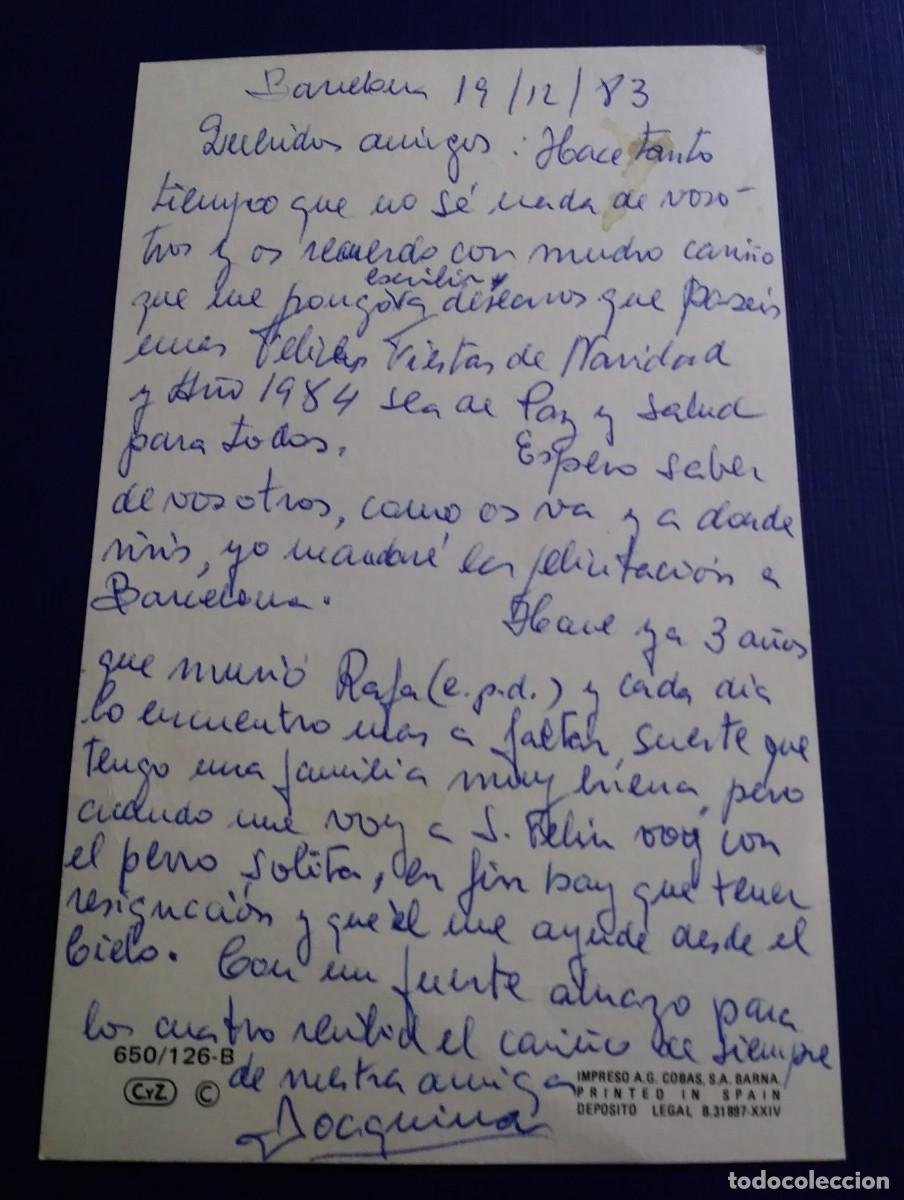 Barcelona 19/12/83
Queridos amigos: Hace tanto
tiempo que no sé nada de voso-
tros y os recuerdo con mucho cariño
escribir y
que me pongo a desearos que paseis
unas Felices Fiestas de Navidad
y Año 1984 sea de Paz y Salud
para todos. Espero saber
de vosotros, como os va y a donde
vivis, yo mandaré la felicitación a
Barcelona. Hace ya 3 años
que murió Rafa (e.p.d.) y cada dia
lo encuentro mas a faltar, suerte que
tengo una familia muy buena, pero
cuando me voy a S. Feliu voy con
el perro solita, en fin hay que tener
resignación y que él me ayude desde el
Cielo. Con un fuerte abrazo para
los cuatro recibid el cariño de siempre
de vuestra amiga
Joaquina
650/126-B
CyZ. ©
IMPRESO A.G. COBAS, S.A. BARNA.
PRINTED IN SPAIN
DEPOSITO LEGAL B.31897-XXIV
todocoleccion